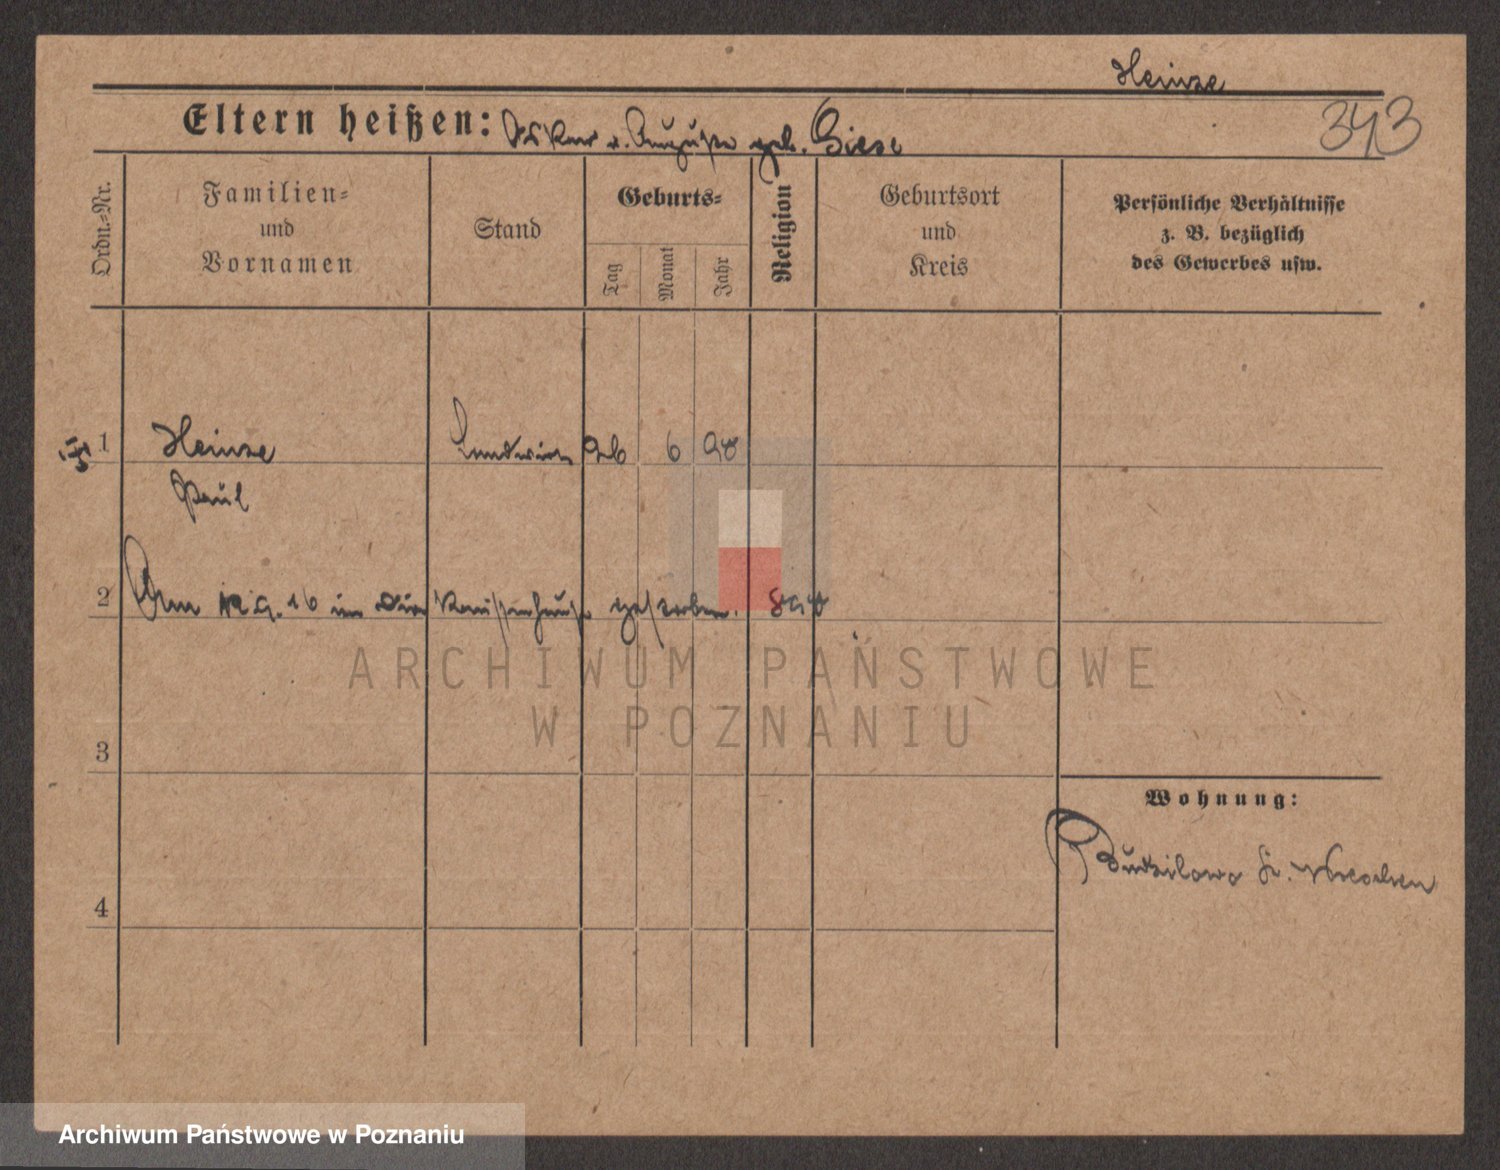 Heinze
343
Eltern heißen: Oskar u. Auguste geb. Giese
Ordn.-Nr.
Familien-
und
Vornamen
Stand
Geburts-
Tag
Monat
Jahr
Religion
Geburtsort
und
Kreis
Persönliche Verhältnisse
z. B. bezüglich
des Gewerbes usw.
1 Heinze Landwirt 26 6 98
Paul
2 Am 9. 16 im gestorben.
ARCHIWUM PAŃSTWOWE
W POZNANIU
3
Wohnung:
Budzilowo Kr. Wreschen
4
Archiwum Państwowe w Poznaniu